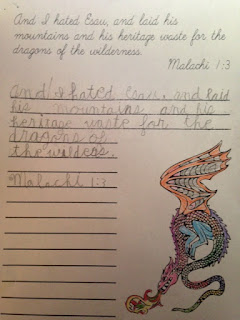 And I hated Esau, and laid his
mountains and his heritage waste for the
dragons of the wilderness.
Malachi 1:3
And I hated Esau, and laid
his mountains and his
heritage waste for the
dragons of
the wildeas.
Malachi 1:3